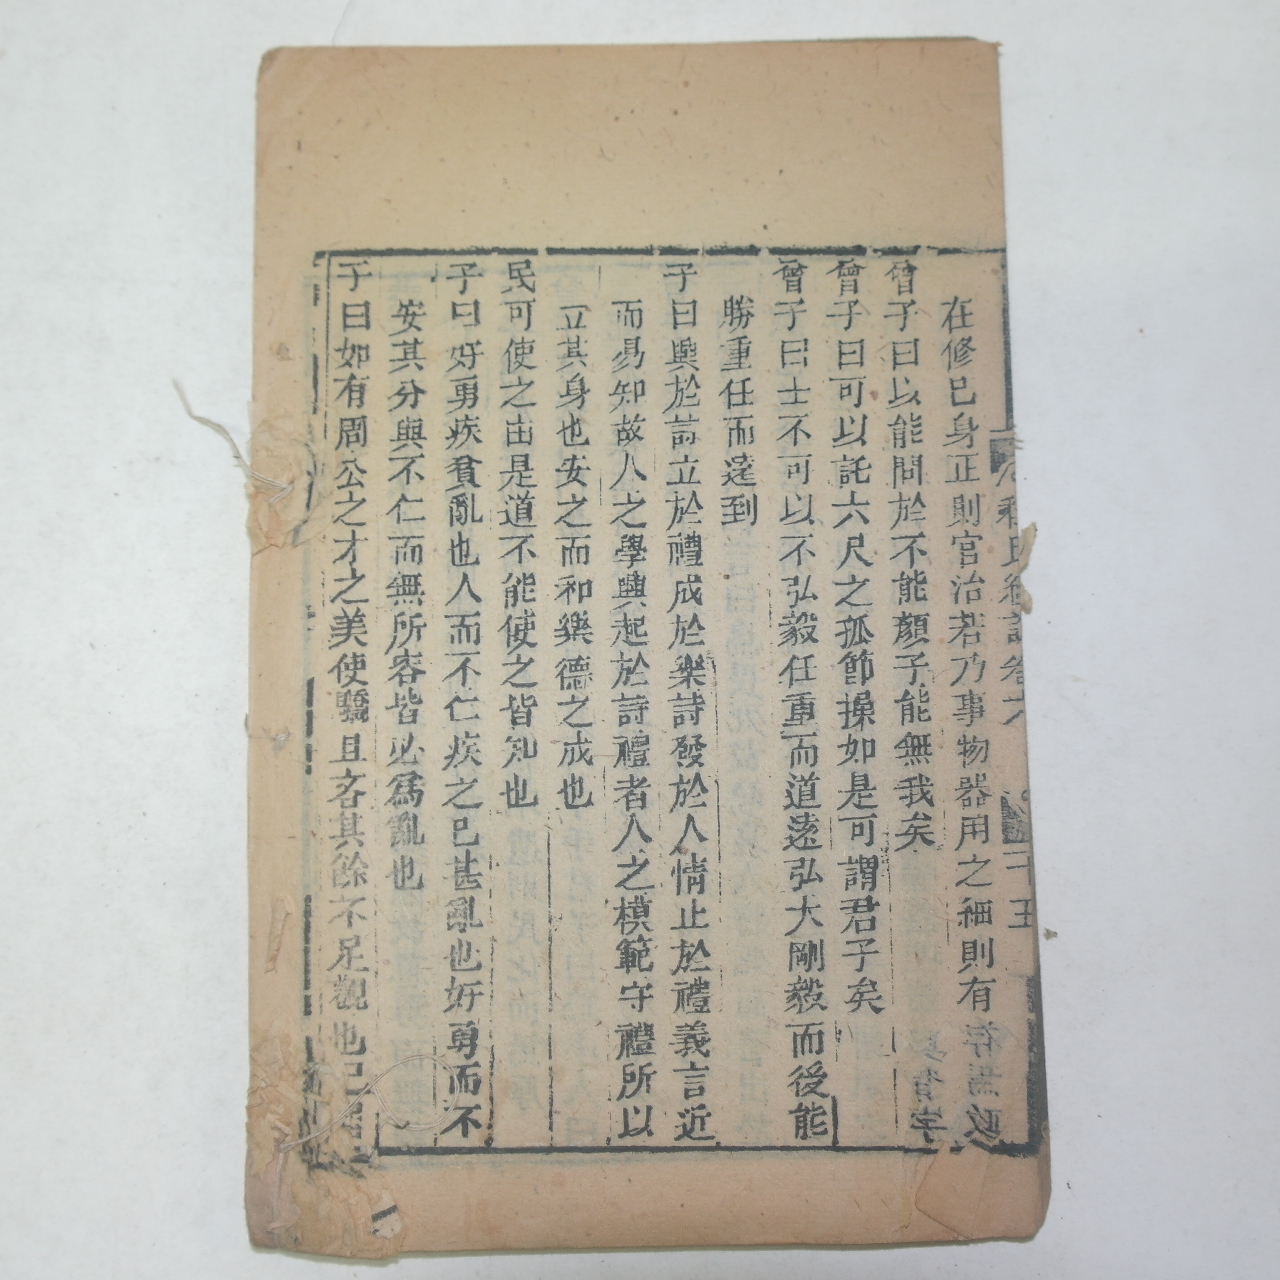 程氏經說卷六
二十五
在修己身正則官治若乃事物器用之細則有存焉政
曾子曰以能問於不能顏子能無我矣
曾子曰可以託六尺之孤節操如是可謂君子矣
曾子曰士不可以不弘毅任重而道遠弘大剛毅而後能
勝重任而遠到
子曰興於詩立於禮成於樂詩發於人情止於禮義言近
而易知故人之學興起於詩禮者人之模範守禮所以
立其身也安之而和樂德之成也
民可使之由是道不能使之皆知也
子曰好勇疾貧亂也人而不仁疾之已甚亂也好勇而不
安其分與不仁而無所容皆必為亂也
子曰如有周公之才之美使驕且吝其餘不足觀也已